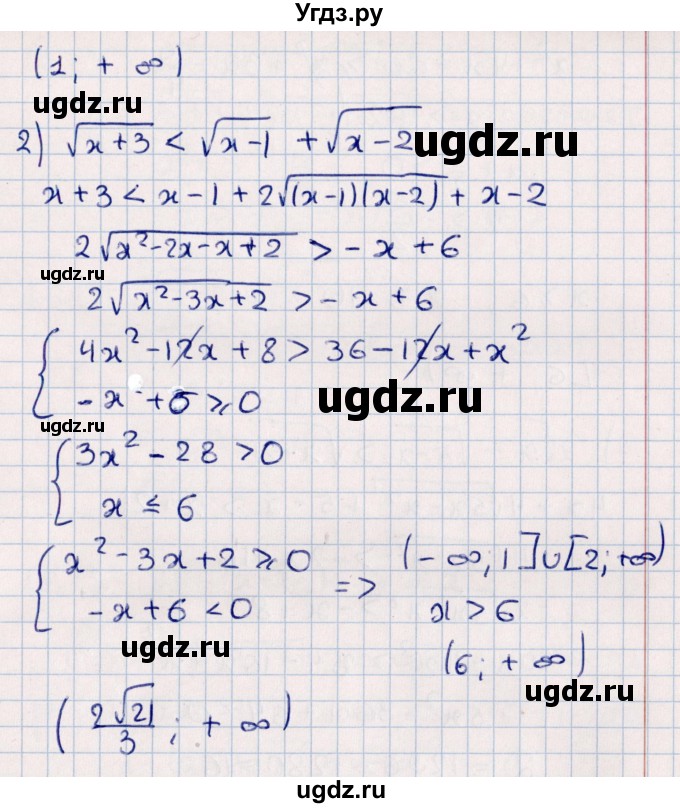 Угдз.ру
(1; + ∞)
ugdz.ru
2) √(x + 3) < √(x - 1) + √(x - 2)
ugdz.ru
x + 3 < x - 1 + 2√((x-1)(x-2)) + x - 2
2√(x² - 2x - x + 2) > - x + 6
ugdz.ru
2√(x² - 3x + 2) > - x + 6
ugdz.ru
{ 4x² - 12x + 8 > 36 - 12x + x²
- x + 6 ≥ 0
ugdz.ru
ugdz.ru
{ 3x² - 28 > 0
x ≤ 6
ugdz.ru
{ x² - 3x + 2 ≥ 0 => (- ∞; 1] ∪ [2; +∞)
- x + 6 < 0 x > 6
ugdz.ru
(6; + ∞)
ugdz.ru
(2√21/3; + ∞)
ugdz.ru
ugdz.ru